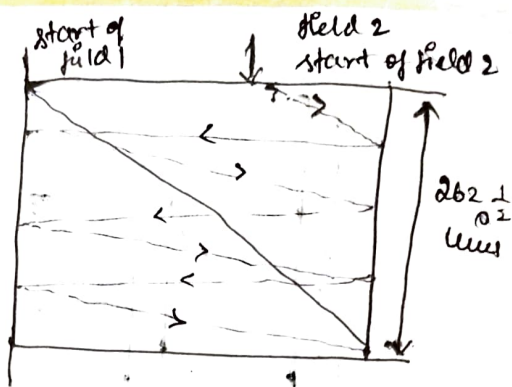 start of
field 1
field 2
start of field 2
262 1/2
lines